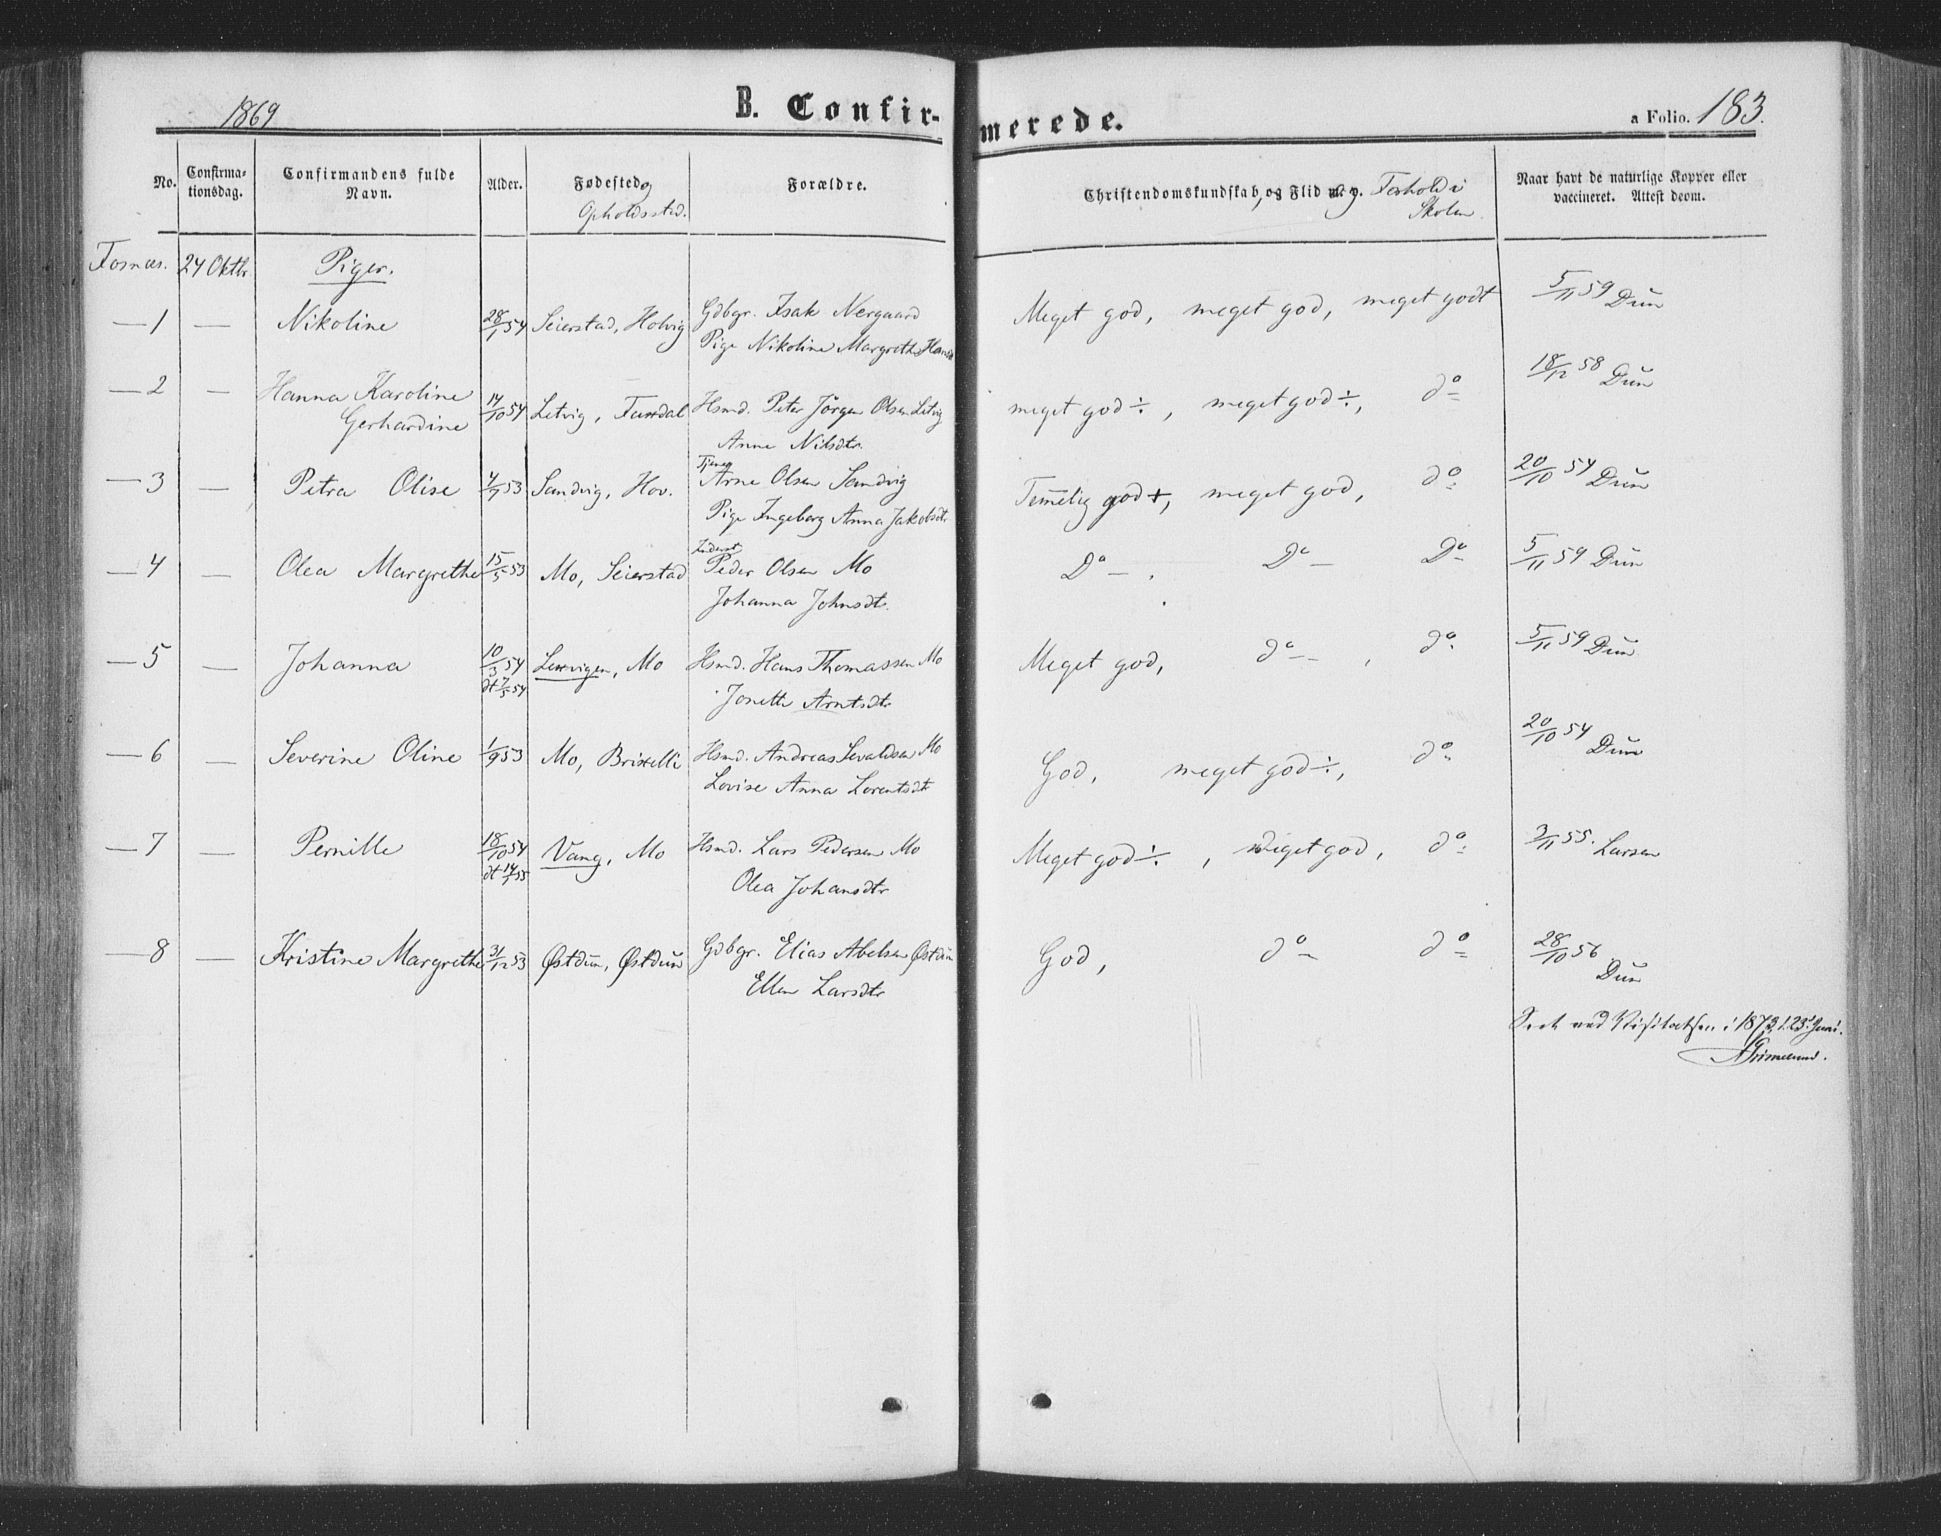 1869
B. Confir-
merede.
a Folio. 183.
No.
Confirma-
tionsdag.
Confirmandens fulde
Navn.
Alder.
Fødested og
Opholdssted.
Forældre.
Christendomskundskab, og Flid m. v. Forhold i
Skolen
Naar havt de naturlige Kopper eller
vaccineret. Attest derom.
Fosnæs. 24 Oktbr. Piger.
— 1 — Nikoline 28/1 54 Seierstad, Holvig Gdbgr. Isak Nergaard
Pige Nikoline Margrethe
Meget god, meget god, meget godt 5/11 59 Dun
— 2 — Hanna Karoline
Gerhardine
14/10 54 Letvig, Hsmd. Peter Jörgen Olsen Letvig
Anne Nilsdtr.
meget god ÷, meget god ÷, do 18/12 58 Dun
— 3 — Petra Olise 4/7 53 Sandvig, Hov. Tjener
Arne Olsen Sandvig
Pige Ingeborg Anna Jakobsdtr
Temelig god +, meget god, do 20/10 54 Dun
— 4 — Olea Margrethe 15/5 53 Mo, Seierstad Inderst
Peder Olsen Mo
Johanna Johnsdt.
Do — . Do — Do 5/11 59 Dun
— 5 — Johanna 10/3 54
dt 7/5 54
Lervigen, Mo Hsmd. Hans Thomassen Mo
Jonette Arntsdtr
Meget god, do — , do 5/11 59 Dun
— 6 — Severine Oline 1/9 53 Mo, Brixelli Hsmd. Andreas Sevaldsen Mo
Lovise Anna Lorentsdtr
God, meget god ÷, do 20/10 54 Dun
— 7 — Pernille 18/10 54
dt 14/1 55
Vang, Mo Hsmd. Lars Pedersen Mo
Olea Johansdtr
Meget god ÷, meget god, do 3/11 55. Larsen
— 8 — Kristine Margrethe 31/12 53 Østdun, Østdun Gdbgr. Elias Abelsen Østdun
Ellen Larsdtr
God, do do 28/10 56
Dun
Seet ved Visitatsen i 1873 d. 23 Juni.
AGrimelund.